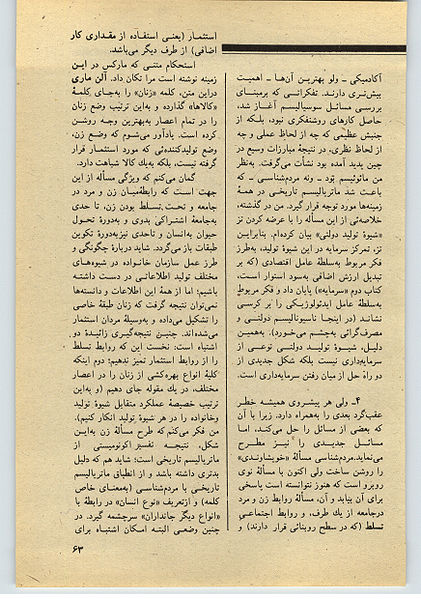 آکادمیکی ـ ولو بهترین آن‌ها ـ اهمیت
بیش‌تری دارند. تفکراتی که برمبنای
بررسی مسائل سوسیالیسم آغاز شد،
حاصل کارهای روشنفکری نبود، بلکه از
جنبش عظیمی که چه از لحاظ عملی و چه
از لحاظ نظری، در نتیجهٔ مبارزات وسیع در
چین پدید آمده بود نشأت می‌گرفت. به‌نظر
من مائوئیسم بود ـ ونه مردم‌شناسی ـ که
باعث شد ماتریالیسم تاریخی در همهٔ
زمینه‌ها مورد توجه قرار گیرد. من در گذشته،
خلاصه‌ئی از این مسأله را با عرضه کردن تز
«شیوهٔ تولید دولتی» بیان کرده‌ام. بنابراین
تز، تمرکز سرمایه در این شیوهٔ تولید، به‌طرز
فکر مربوط به‌سلطهٔ عامل اقتصادی (که بر
تبدیل ارزش اضافی به‌سود استوار است،
کتاب دوم «سرمایه») پایان داد و فکر مربوط
به‌سلطهٔ عامل ایدئولوژیکی را بر کرسی
نشاند (در اینجا ناسیونالیسم دولتی و
مصرف‌گرائی به‌چشم می‌خورد). به‌همین
دلیل، شیوهٔ تولید دولتی نوعی از
سرمایه‌داری نیست بلکه شکل جدیدی از
دو راهٔ حل از میان رفتن سرمایه‌داری است.
۴ـ ولی هر پیشروی همیشه خطر
عقب‌گرد بعدی را به‌همراه دارد. زیرا با آن
که بعضی از مسائل را حل می‌کند، اما
مسائل جدیدی را نیز مطرح
می‌نماید. مردم‌شناسی مسألهٔ «خویشاوندی»
را روشن ساخت ولی اکنون با مسألهٔ نوی
روبرو است که هنوز نتوانسته است پاسخی
برای آن بیابد و آن، مسألهٔ روابط زن و مرد
درجامعه از یك طرف، و روابط اجتماعی
تسلط (که در سطح روبنائی قرار دارند) و
استثمار (یعنی استفاده از مقداری کار
اضافی) از طرف دیگر می‌باشد.
استحکام متنی که مارکس در این
زمینه نوشته است مرا تکان داد. آلن ماری
دراین متن، کلمه «زنان» را به‌جای کلمهٔ
«کالاها» گذارده و به‌این ترتیب وضع زنان
را در تمام اعصار به‌بهترین وجه روشن
کرده است. یادآور می‌شوم که وضع زن،
وضع تولیدکننده‌ئی که مورد استثمار قرار
گرفته نیست، بلکه به‌یك کالا شباهت دارد.
گمان می‌کنم که ویژگی مسأله از این
جهت است که رابطه‌میان زن و مرد در
جامعه و تحت تسلط بودن زن، تا حدی
به‌جامعهٔ اشتراکی بدوی و به‌دورهٔ تحول
حیوان به‌انسان و تاحدی نیزبه‌دورهٔ تکوین
طبقات باز می‌گردد. شاید دربارهٔ چگونگی و
طرز عمل سازمان خانواده در شیوه‌های
مختلف تولید اطلاعاتی در دست داشته
باشیم؛ اما از همهٔ این اطلاعات و دانسته‌ها
نمی‌توان نتیجه گرفت که زنان طبقهٔ خاصی
را تشکیل می‌داده و به‌وسیلهٔ مردان استثمار
می‌شده‌اند. چنین نتیجه‌گیری زائیدهٔ دو
اشتباه است: نخست این که روابط تسلط
را از روابط استثمار تمیز ندهیم؛ دوم اینکه
کلیهٔ انواع بهره‌کشی از زنان را در اعصار
مختلف، در یك مقوله جای دهیم (و به‌این
ترتیب خصیصهٔ عملکرد متقابل شیوهٔ تولید
وخانواده را در هر شیوهٔ تولید انکار کنیم).
من فکر می‌کنم که طرح مسألهٔ زن به‌این
شکل، نتیجه تفسیر اکونومیستی از
ماتریالیسم تاریخی است؛ شاید هم که دلیل
بدتری داشته باشد و از انطباق ماتریالیسم
تاریخی با مردم‌شناسی (به‌معنای خاص
کلمه) و ازتعریف «نوع انسان» در رابطه با
«انواع دیگر جانداران» سرچشمه گیرد. در
چنین وضعی البته امکان اشتباه برای
۶۳